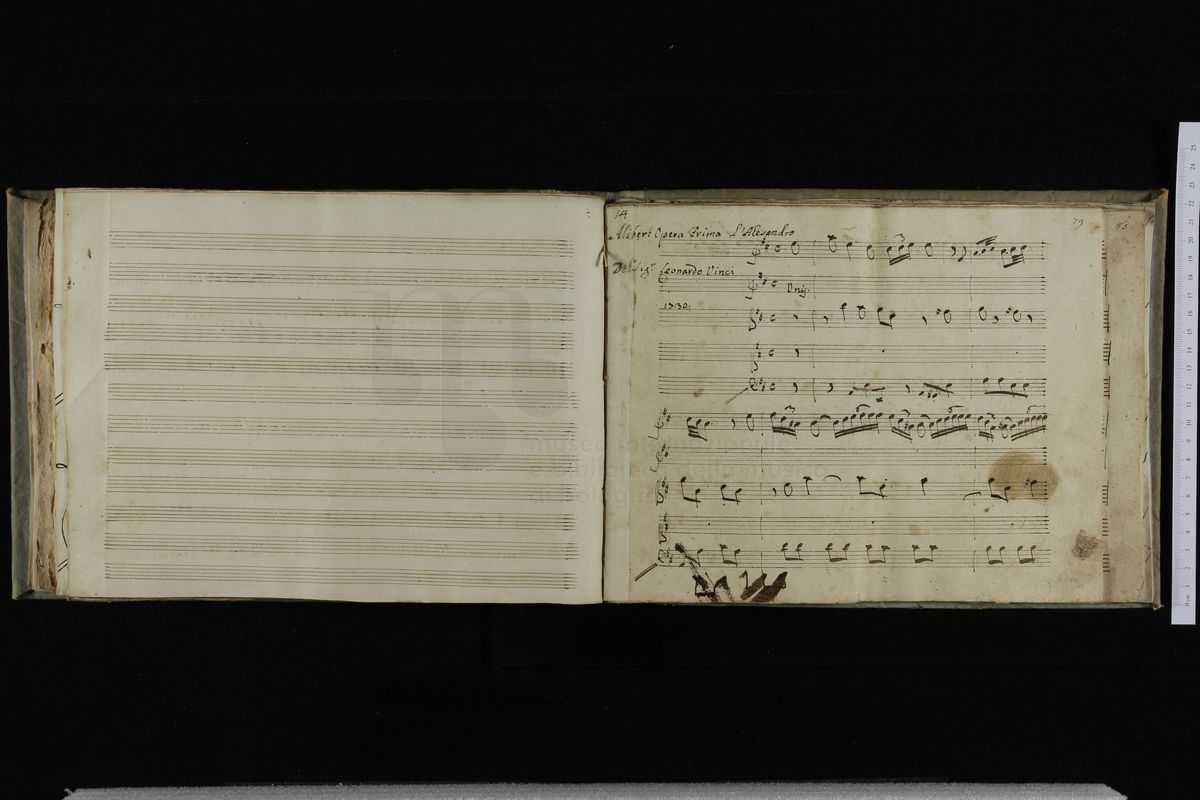 14
79
85
Alibert Opera Prima L'Alesandro
Del Sig.r Leonardo Vinci
Unis:
1730.
museo internazionale
e biblioteca della musica
di bologna